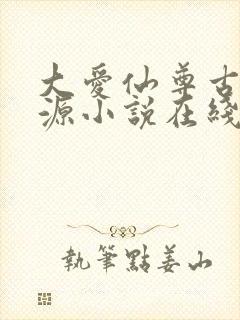 大愛仙尊古
源小說在綫
執筆點姜山